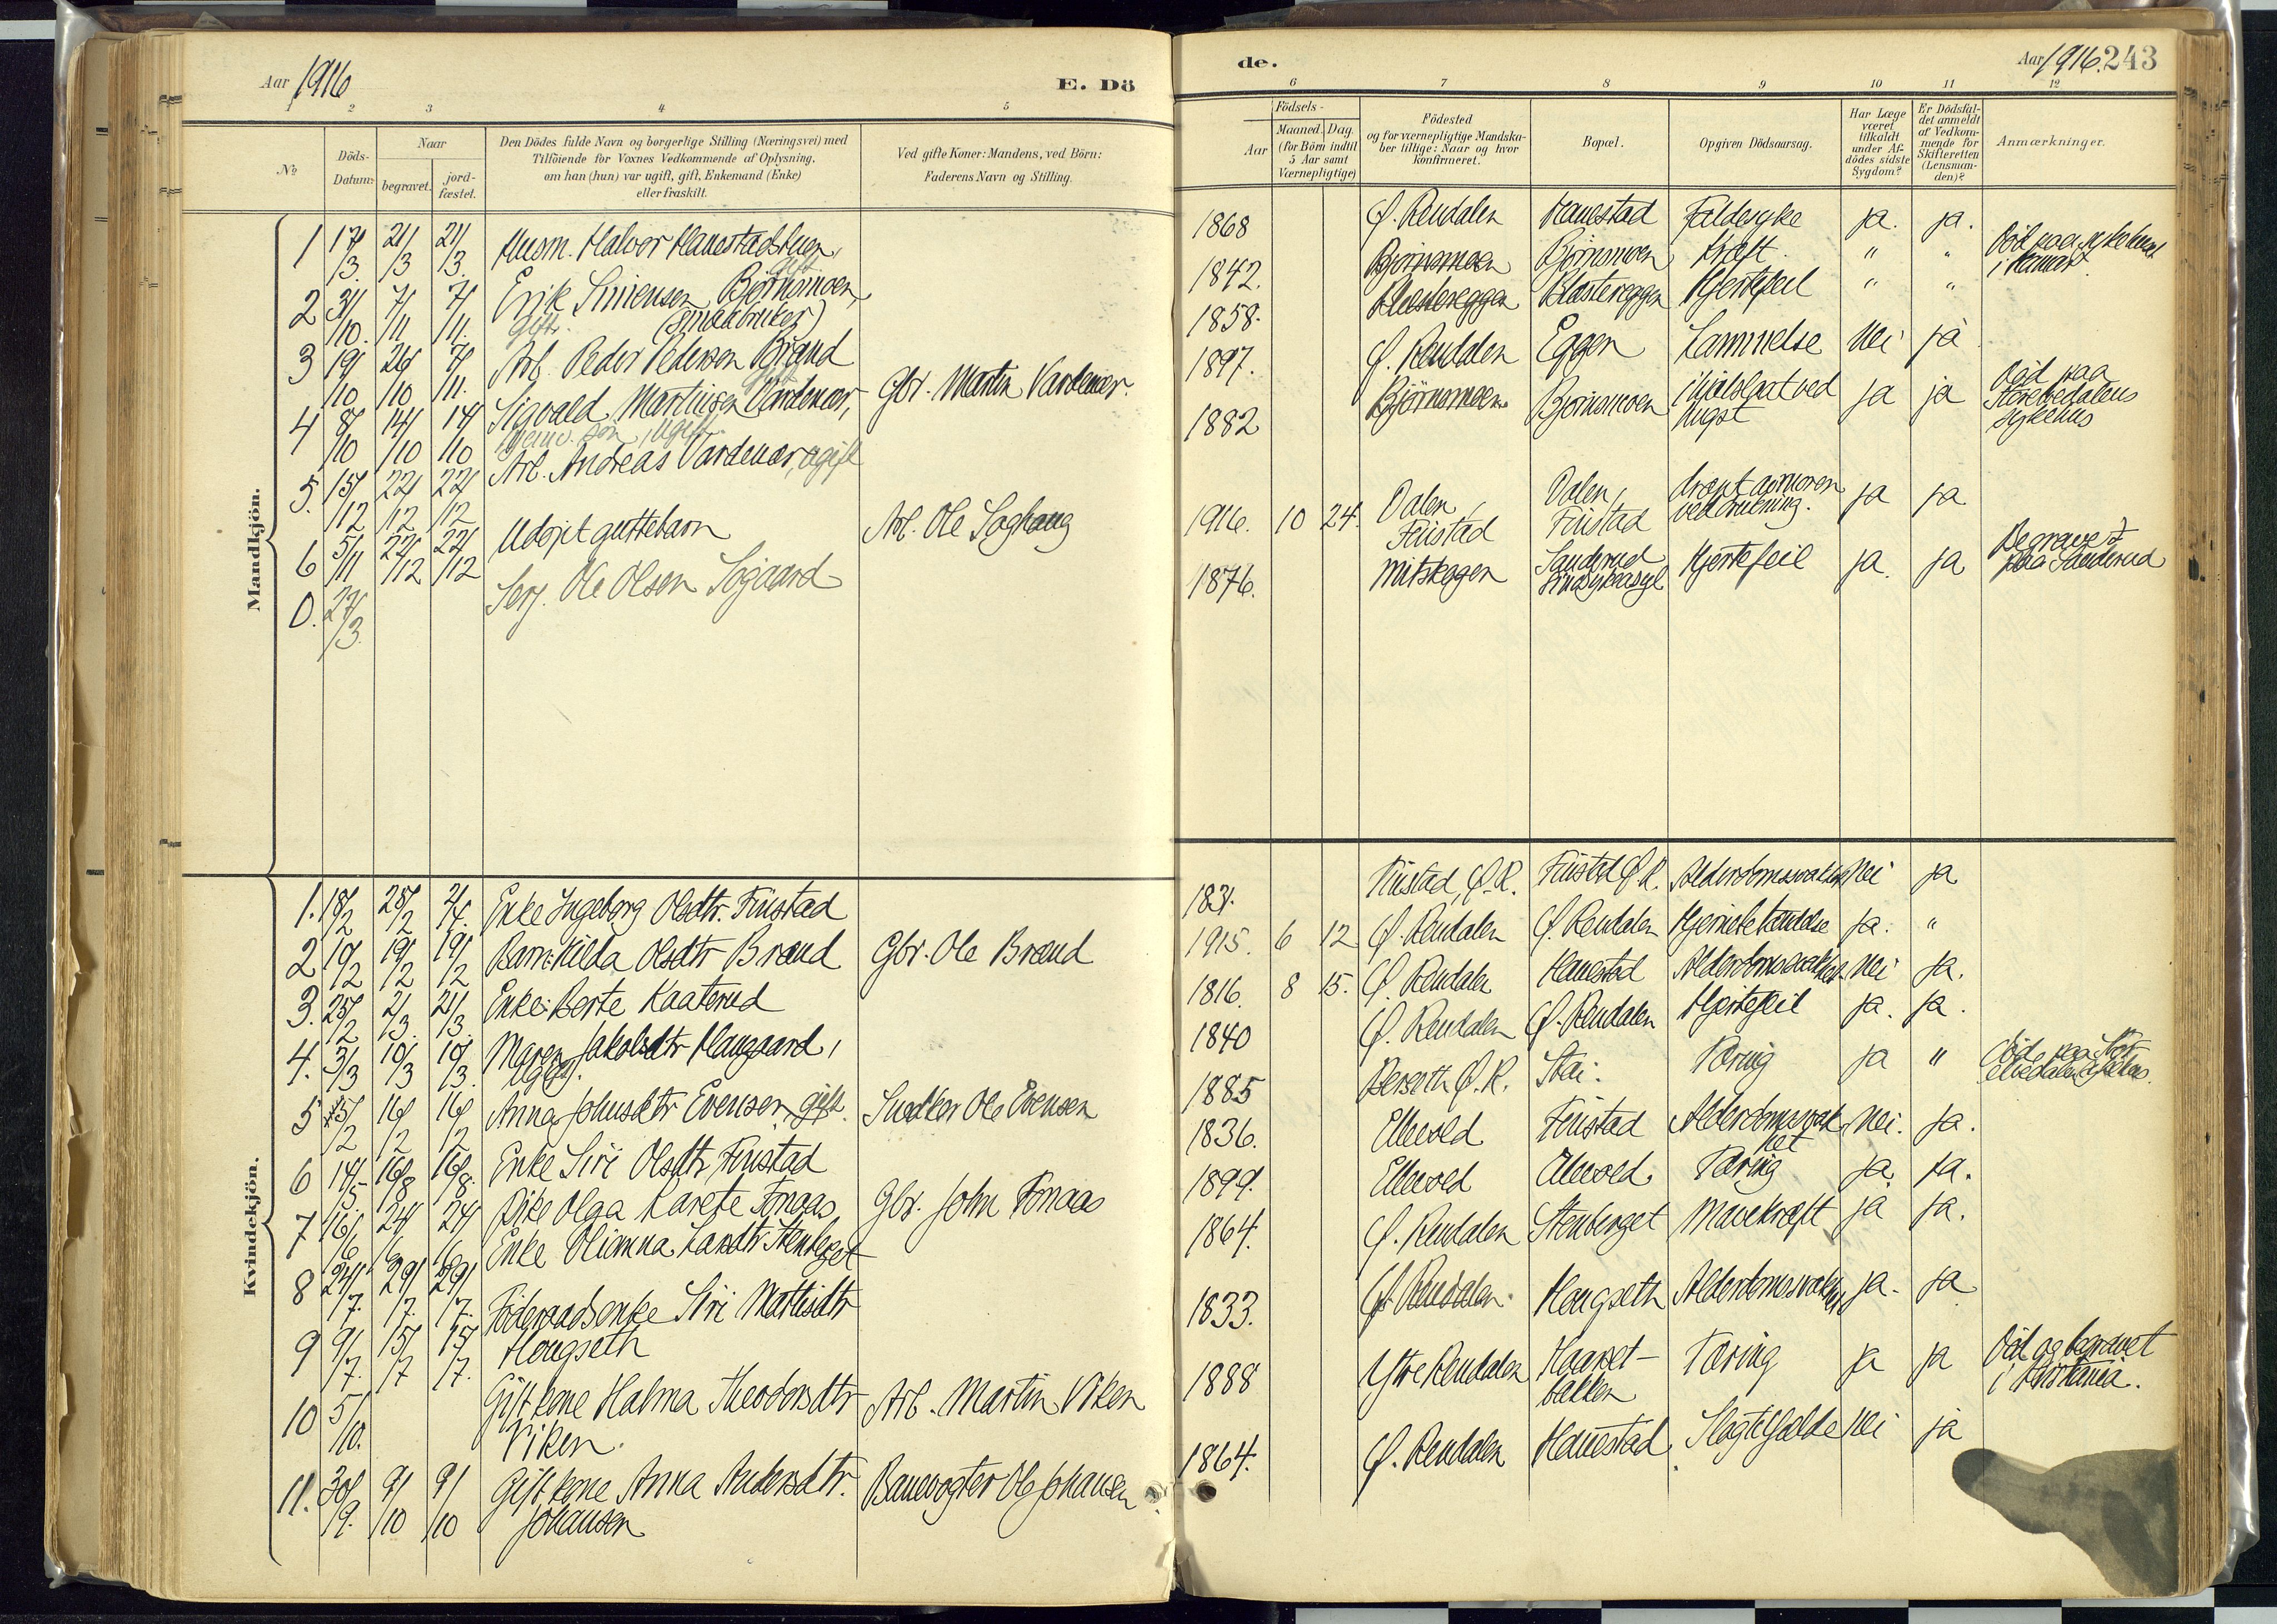 Aar 1916
E. Dö
1 2 3 4 5
№
Döds-
Datum.
Naar
begravet.
jord-
fæstet.
Den Dödes fulde Navn og borgerlige Stilling (Næringsvei) med
Tilföiende for Voxnes Vedkommende af Oplysning,
om han (hun) var ugift, gift, Enkemand (Enke)
eller fraskilt.
Ved gifte Koner: Mandens, ved Börn:
Faderens Navn og Stilling.
Mandkjön.
1 17/3. 21/3 21/3. Husm. Halvor Hanestadhuen,
gift
2 31/10. 7/11 7/11. Erik Simensen Bjørnsmoen,
gift. (smaabruker)
3 19/10 26/10 7/11. Arb. Peder Pedersen Brænd
gift
4 8/10 14/10 14/10 Sigvald Martinsen Vardenær, Gbr. Martin Vardenær.
hjemv. søn, ugift.
5. 15/12 22/12 22/12 Arb. Andreas Vardenær, ugift
6 5/11 22/12 22/12 Udøpt guttebarn Arb. Ole Loghaug
0. 27/3. Serj. Ole Olsen Sjøgaard
Kvindekjön.
1. 18/2 28/2 2/4. Enke Ingeborg Olsdtr. Finstad
2 10/2 19/2 19/2 Barn: Hilda Olsdtr Brænd Gbr. Ole Brænd
3. 25/2 2/3. 21/3. Enke: Berte Kaaterud
4. 3/3 10/3 10/3. Maren Jakobsdtr Haugaard,
ugift.
5 5/2 16/2 16/2 Anna Johnsdtr Evensen, gift. Snedker Ole Evensen
6 14/5 16/8 16/8. Enke Siri Olsdtr Finstad
7 16/6 24/6 24/6 Pike Olga Karete Fonaas Gbr. John Fonaas
8 24/7. 29/7. 29/7. Enke Olianna Larsdtr Stenberget
9 9/7. 15/7 15/7. Föderaadsenke Siri Mattisdtr
Hougseth
10 5/10. Gift kone Halma Theodorsdtr Arb. Martin Viken
Viken.
11. 30/9. 9/10 9/10 Gift kone Anna Andersdtr. Banevogter Ole Johansen
Johansen
de.
Aar 1916. 243
6 7 8 9 10 11 12
Födsels-
Aar
Maaned. Dag.
(for Börn indtil
5 Aar samt
Værnepligtige)
Födested
og for værnepligtige Mandska-
ber tillige: Naar og hvor
konfirmeret.
Bopæl.
Opgiven Dödsaarsag.
Har Læge
været
tilkaldt
under Af-
dödes sidste
Sygdom?
Er Dödsfal-
det anmeldt
af Vedkom-
mende for
Skifteretten
(Lensman-
den)?
Anmærkninger.
1868 Ø. Rendalen Hanestad Faldesyke ja. ja.
1842. Bjørnsmoen Bjørnsmoen Kræft. " " Död paa sykehuset
i Hamar.
1858. Klostereggen Klostereggen Hjertefeil " "
1897. Ø. Rendalen Eggen Lammelse Nei ja
1882 Bjørnsmoen Bjørnsmoen ja ja Död paa
Storelvedalens
sykehus
1916. 10 24. Dalen, Dalen, dræpt av moren ja ja
Finstad Finstad
1876. Mitskogen Sanderud Hjertefeil ja. ja Begravet
sindsykeasyl paa Sanderud
1831. Finstad, Ø.R. Finstad Ø.R. Alderdomssvakhet Nei ja
1915. 6 12 Ø. Rendalen Ø. Rendalen Hjernebetændelse ja. "
1816. 8 15. Ø. Rendalen Hanestad Alderdomssvakhet. Nei ja.
1840 Ø. Rendalen Ø. Rendalen Hjertefeil ja. ja.
1885 Berseth Ø.R. Stai. Tæring ja " Död paa Stor-
elvedalens sykehus.
1836. Ellevold Finstad Alderdomssvak- Nei. ja.
het
1899. Ellevold Ellevold. Tæring ja. ja.
1864. Ø. Rendalen Stenberget Mavekræft ja ja.
1833. Ø. Rendalen. Hougseth Alderdomssvakhet ja. ja
1888 Ytre Rendalen Haarset- Tæring ja ja Död og begravet
bakken i Kristiania.
1864. Ø. Rendalen Hanestad. Slagtilfælde Nei ja